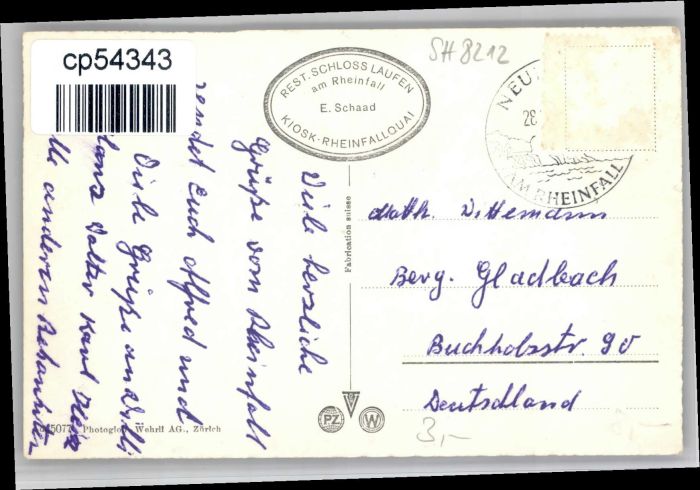 cp54343
SH 8212
REST. SCHLOSS LAUFEN
am Rheinfall
E. Schaad
KIOSK-RHEINFALLQUAI
NEU
28.
AM RHEINFALL
Viele herzliche
Grüße vom Rheinfall
sendet Euch Alfred und
Viele Grüße an Willi
Hans Walter Karl Heinz
alle anderen Bekannten
Fabrication suisse
Math. Dittemann
Berg. Gladbach
Buchholzstr. 90
Deutschland
3,-
PZ
W
5077 Photoglob-Wehrli AG., Zürich